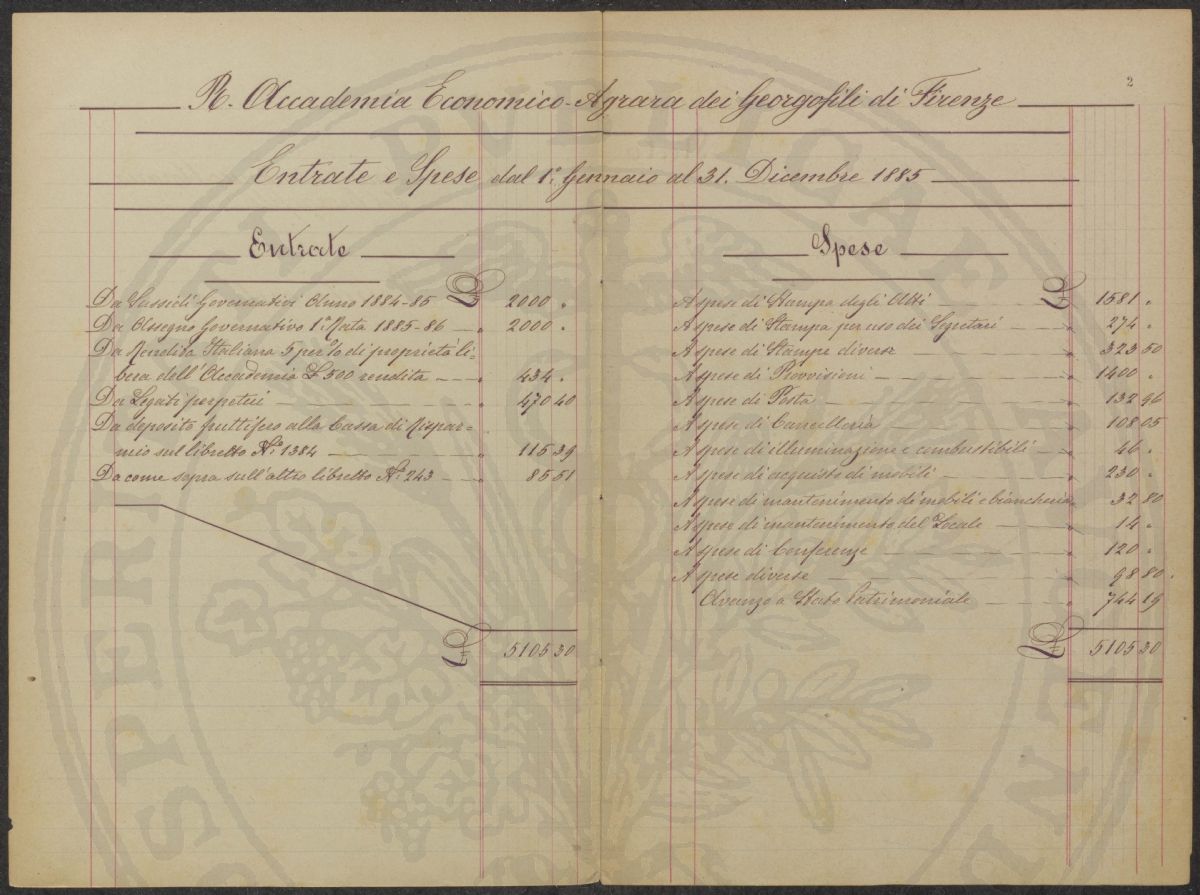 2
R. Accademia Economico-Agraria dei Georgofili di Firenze
Entrate e Spese dal 1°. Gennaio al 31. Dicembre 1885
Entrate
Da Sussidi Governativi Anno 1884-85 £ 2000 "
Da Assegno Governativo 1ª Rata 1885-86 " 2000 "
Da Rendita Italiana 5 per % di proprietà li-
bera dell'Accademia £ 500 rendita " 434 "
Da Legati perpetui " 470 40
Da deposito fruttifero alla Cassa di Rispar-
mio sul libretto N.° 1384 " 115 39
Da come sopra sull'altro libretto N.° 243 " 85 51
£ 5105 30
Spese
A spese di Stampa degli Atti £ 1581 "
A spese di Stampa per uso dei Segretari " 274 "
A spese di Stampe diverse " 323 50
A spese di Provvisioni " 1400 "
A spese di Posta " 132 96
A spese di Cancelleria " 108 05
A spese di illuminazione e combustibili " 46 "
A spese di acquisto di mobili " 230 "
A spese di mantenimento di mobili e biancheria " 32 80
A spese di mantenimento del Locale " 14 "
A spese di Conferenze " 120 "
A spese diverse " 98 80
Avanzo a Stato Patrimoniale " 744 19
£ 5105 30